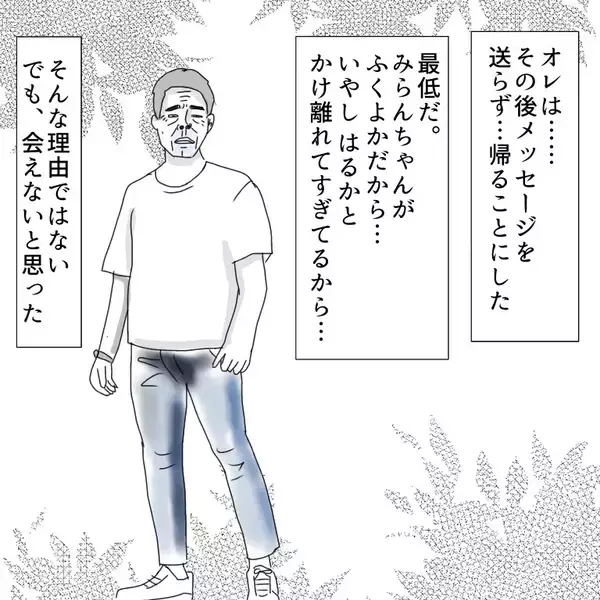 オレは……
その後メッセージを
送らず…帰ることにした
最低だ。
みらんちゃんが
ふくよかだから…
いやし はるかと
かけ離れてすぎてるから…
そんな理由ではない
でも、会えないと思った